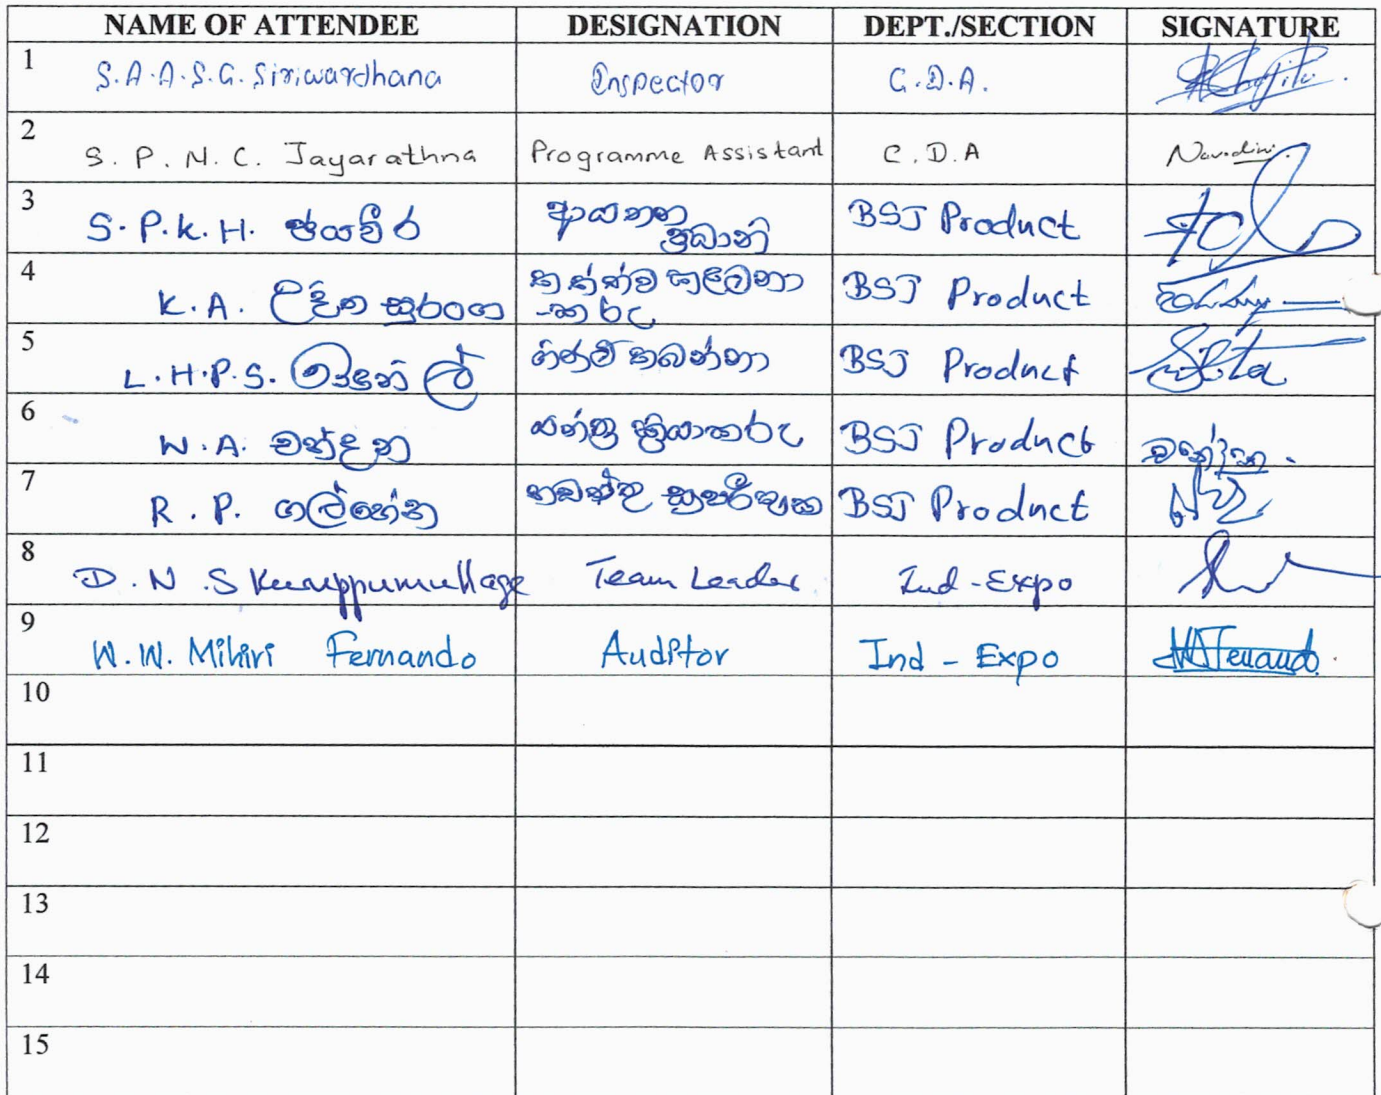 NAME OF ATTENDEE DESIGNATION DEPT./SECTION SIGNATURE
1 S.A.A.S.G. Siriwardhana Inspector C.D.A.
2 S. P. N. C. Jayarathna Programme Assistant C.D.A
3 S.P.K.H. ජයවීර ආයතන ප්‍රධානි BSJ Product
4 K.A. උදිත සුරංග තත්ත්ව කළමනා BSJ Product
-කරු
5 L.H.P.S. ගිණුම් තබන්නා BSJ Product
6 W.A. චන්දන යන්ත්‍ර ක්‍රියාකරු BSJ Product චන්දන.
7 R.P. ගල්හේන නඩත්තු සුපරීක්ෂක BSJ Product
8 D.N.S Kuruppumullage Team Leader Ind-Expo
9 W.W. Mihiri Fernando Auditor Ind - Expo
10
11
12
13
14
15